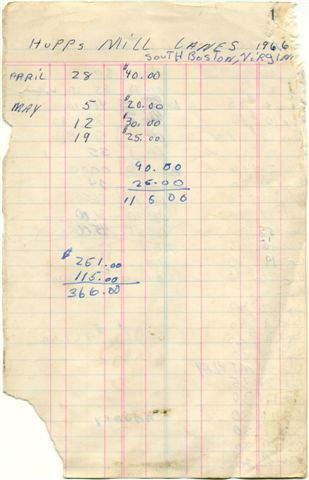 1
HUPPS MILL LANES 1966
SOUTH BOSTON, VIRGINI
APRIL 28 $40.00
MAY 5 $20.00
12 $30.00
19 $25.00
90.00
25.00
115.00
$251.00
115.00
366.00